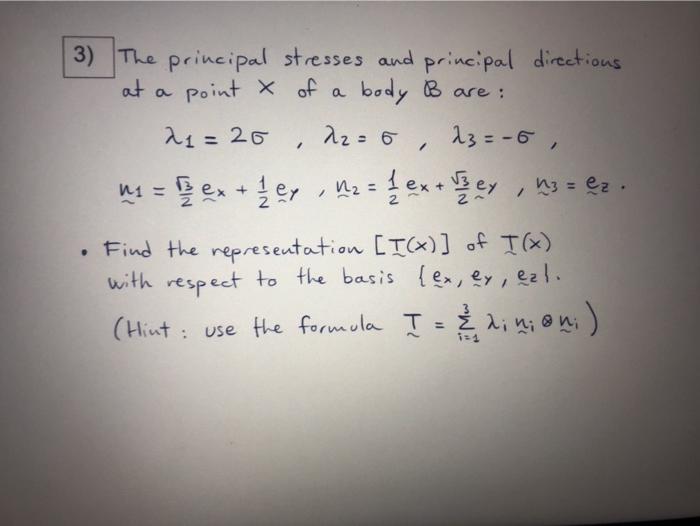 3) The principal stresses and principal directions
at a point X of a body B are :
λ1 = 2σ , λ2 = σ , λ3 = -σ ,
n1 = √3/2 ex + 1/2 ey , n2 = 1/2 ex + √3/2 ey , n3 = ez .
• Find the representation [T(x)] of T(x)
with respect to the basis {ex, ey, ez}.
(Hint : use the formula T = Σ_{i=1}^{3} λi ni ⊗ ni )